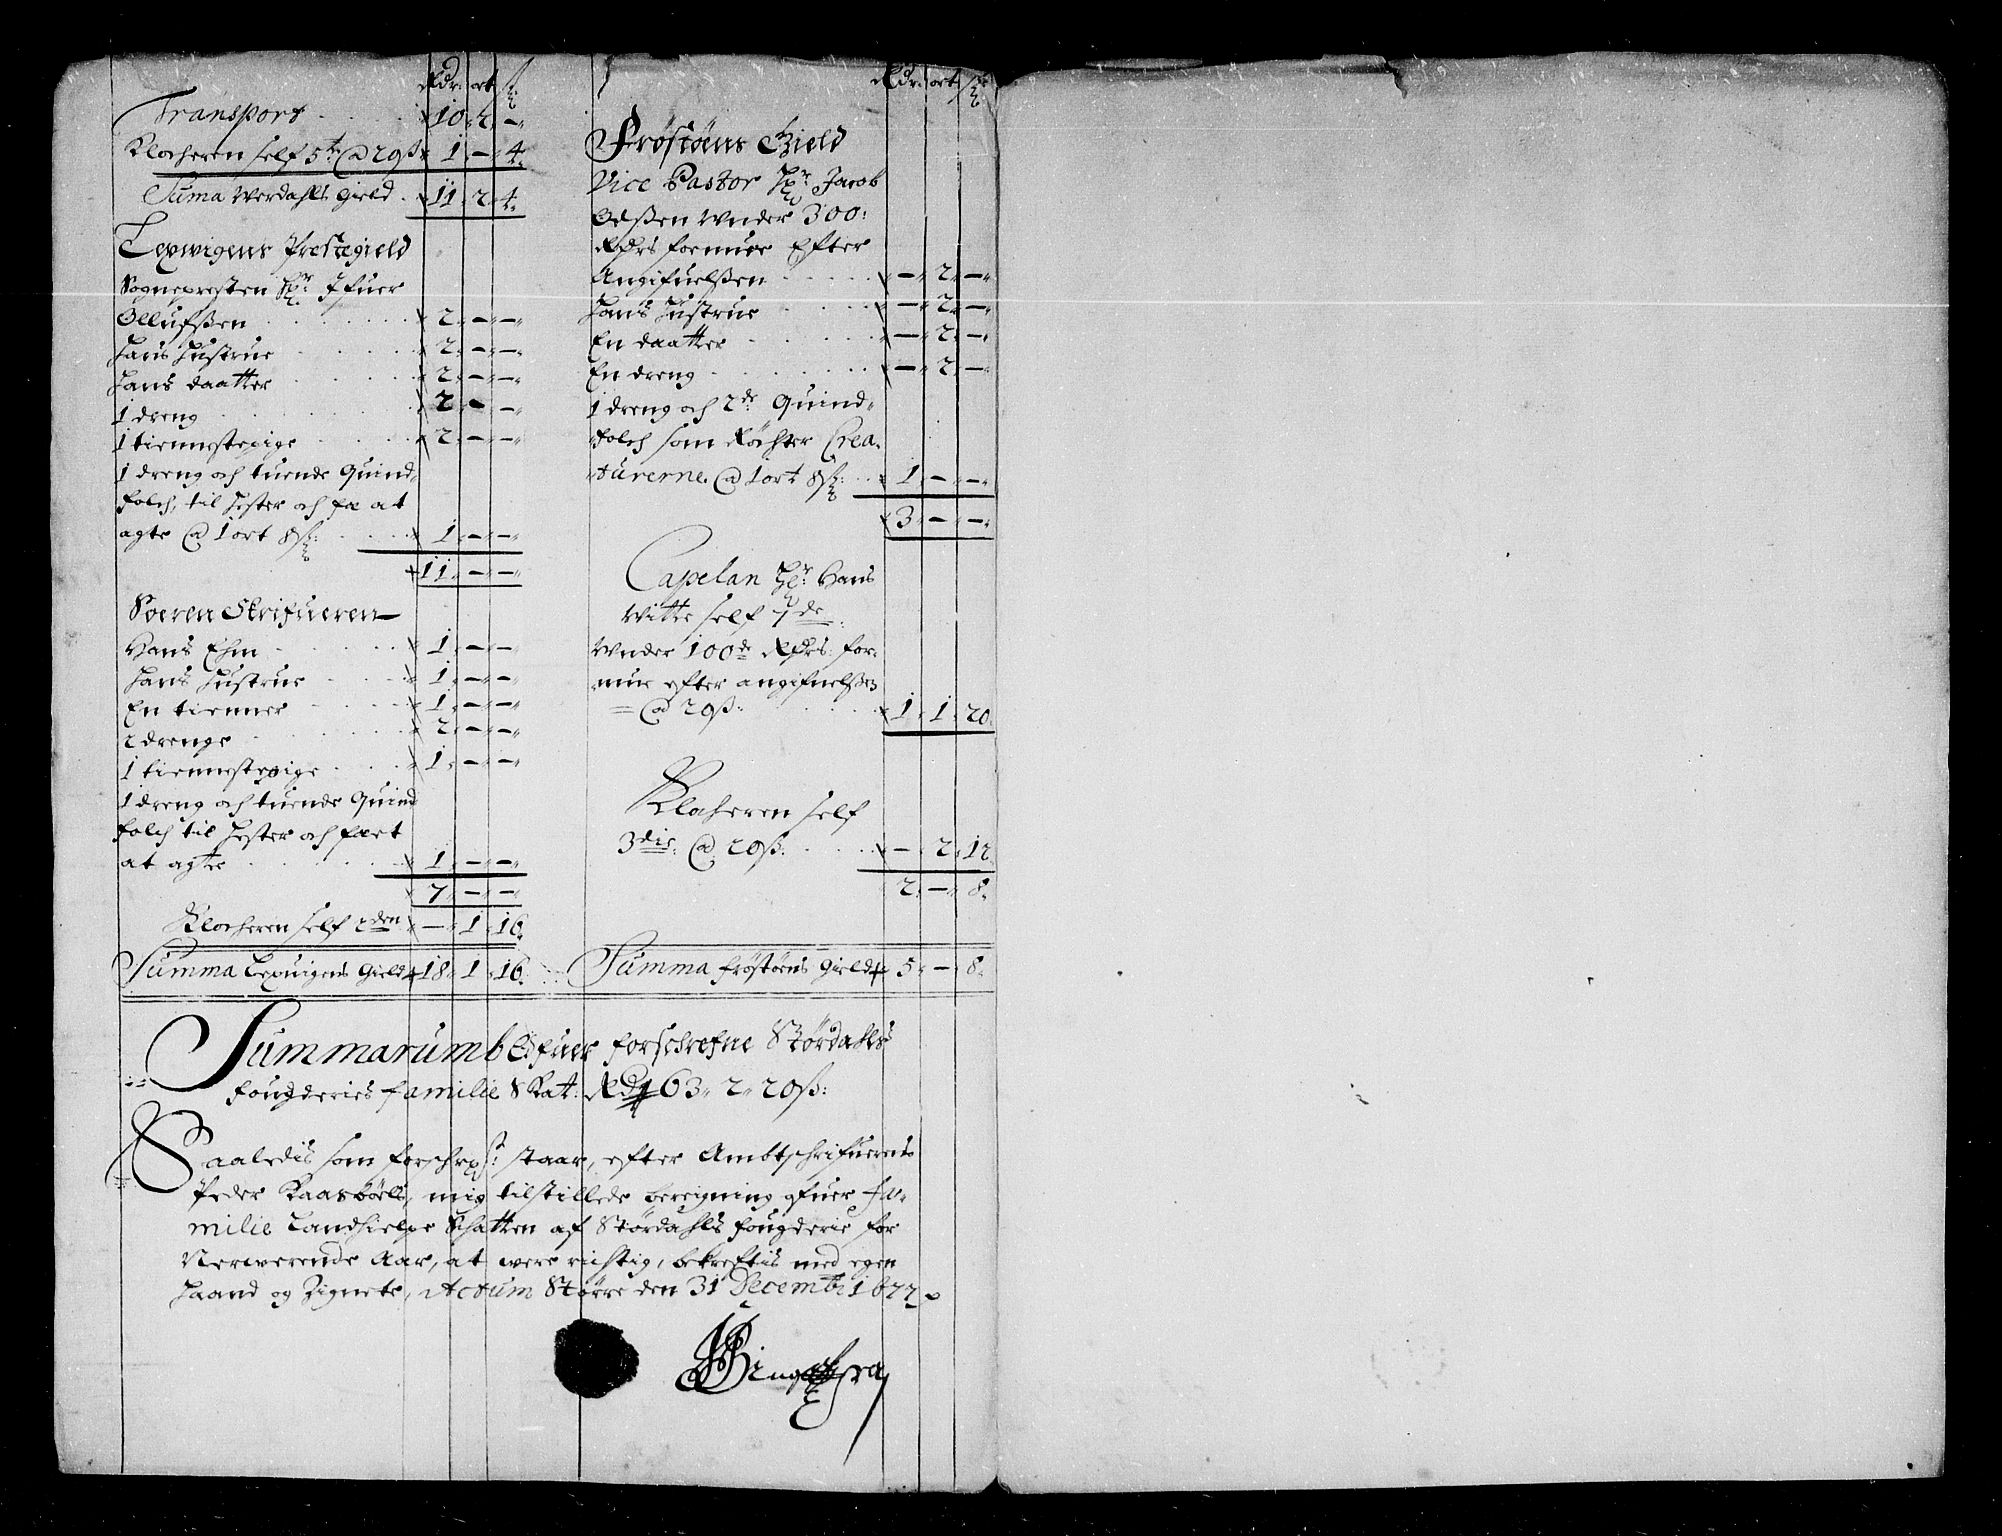 Rdr: ort ß
Transport 10 2 –
Klocheren self 5te @ 20ß 1 – 4
Suma Werdahls Gield 11 2 4
Lexwigens Prestegield
Sognepresten Hr Ifuer
Ollufsßen 2 – –
Hans Hustrue 2 – –
Hans daatter 2 – –
1 dreng 2 – –
1 tiennistepige 2 – –
1 dreng och tuende Quind
folch, til Hester och fæ at
agte @ 1 ort 8ß: 1 – –
11 – –
Soeren Skrifueren
Hans Ehm 1 – –
Hans Hustrue 1 – –
En tienner 1 – –
2 drenge 2 – –
1 tiennistepige 1 – –
1 dreng och tuende Quind
folch til Hester och fæet
at agte 1 – –
7 – –
Klocheren self 2den – 1 16
Summa Lexuigens Gield 18 1 16
Rdr: ort ß
Frøstøens Gield
Vice Pastor Hr Jacob
Odßen Under 300:
Rdrs formue Efter
Angifuelßen – 2 –
Hans Hustrue – 2 –
En daatter – 2 –
En dreng – 2 –
1 dreng och 2de Quind
folch som Røchter Crea
turerne @ 1 ort 8ß: 1 – –
3 – –
Capelan Hr: Hans
Witte self 7de
Under 100de Rdrs: for
mue efter angifuelßen
@ 20ß: 1 1 20
Klocheren self
3die: @ 20ß: – 2 12
2 – 8
Summa frøstøens gield 5 – 8
Summarum Ofuer forschrefne Størdahls
fougderies familie Skat: Rdr 63 2 20ß:
Saaledis som forschreft: staar, efter Ambtschrifuerens
Peder Kaasbøls, mig tilstillede bereigning ofuer fa
milie Landhielpe Schatten af Størdahls fougderie for
Nerwerende Aar, at were richtig, bekreftis med egen
Haand og Zignete, Actum Større den 31 Decembr 1677